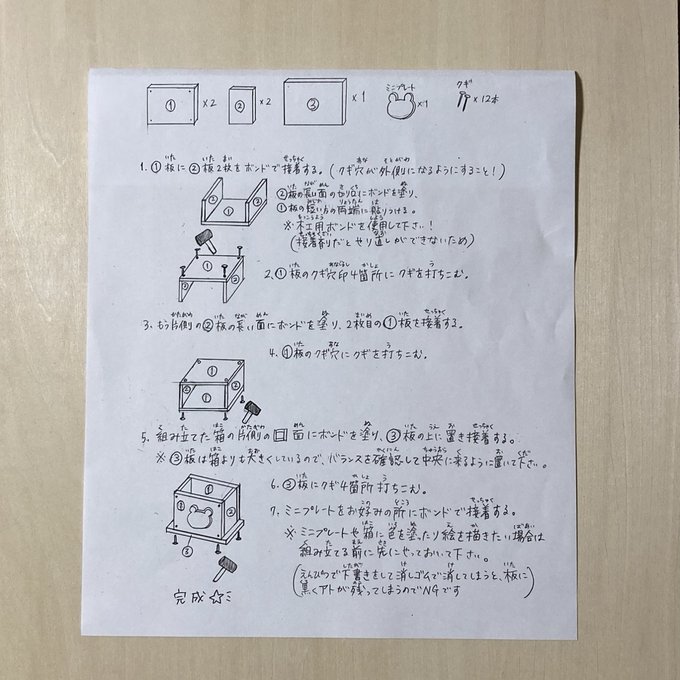 ① ×2 ② ×2 ③ ×1 ミニプレート ×1 クギ ×12本
1. ①板に②板2枚をボンドで接着する。(クギ穴が外側になるようにすること!)
②板の長い面の切り口にボンドを塗り、
①板の短い方の両端に貼りつける。
※木工用ボンドを使用して下さい!
(接着剤だとやり直しができないため)
2. ①板のクギ穴印4箇所にクギを打ちこむ。
3. もう片側の②板の長い面にボンドを塗り、2枚目の①板を接着する。
4. ①板のクギ穴にクギを打ちこむ。
5. 組み立てた箱の片側の面にボンドを塗り、③板の上に置き接着する。
※③板は箱よりも大きくしているので、バランスを確認して中央に来るように置いて下さい。
6. ③板にクギ4箇所打ちこむ。
7. ミニプレートをお好みの所にボンドで接着する。
※ミニプレートや箱に色を塗ったり絵を描きたい場合は
組み立てる前に先にやっておいて下さい。
(えんぴつで下書きをして消しゴムで消してしまうと、板に
黒くアトが残ってしまうのでNGです)
完成☆ミ